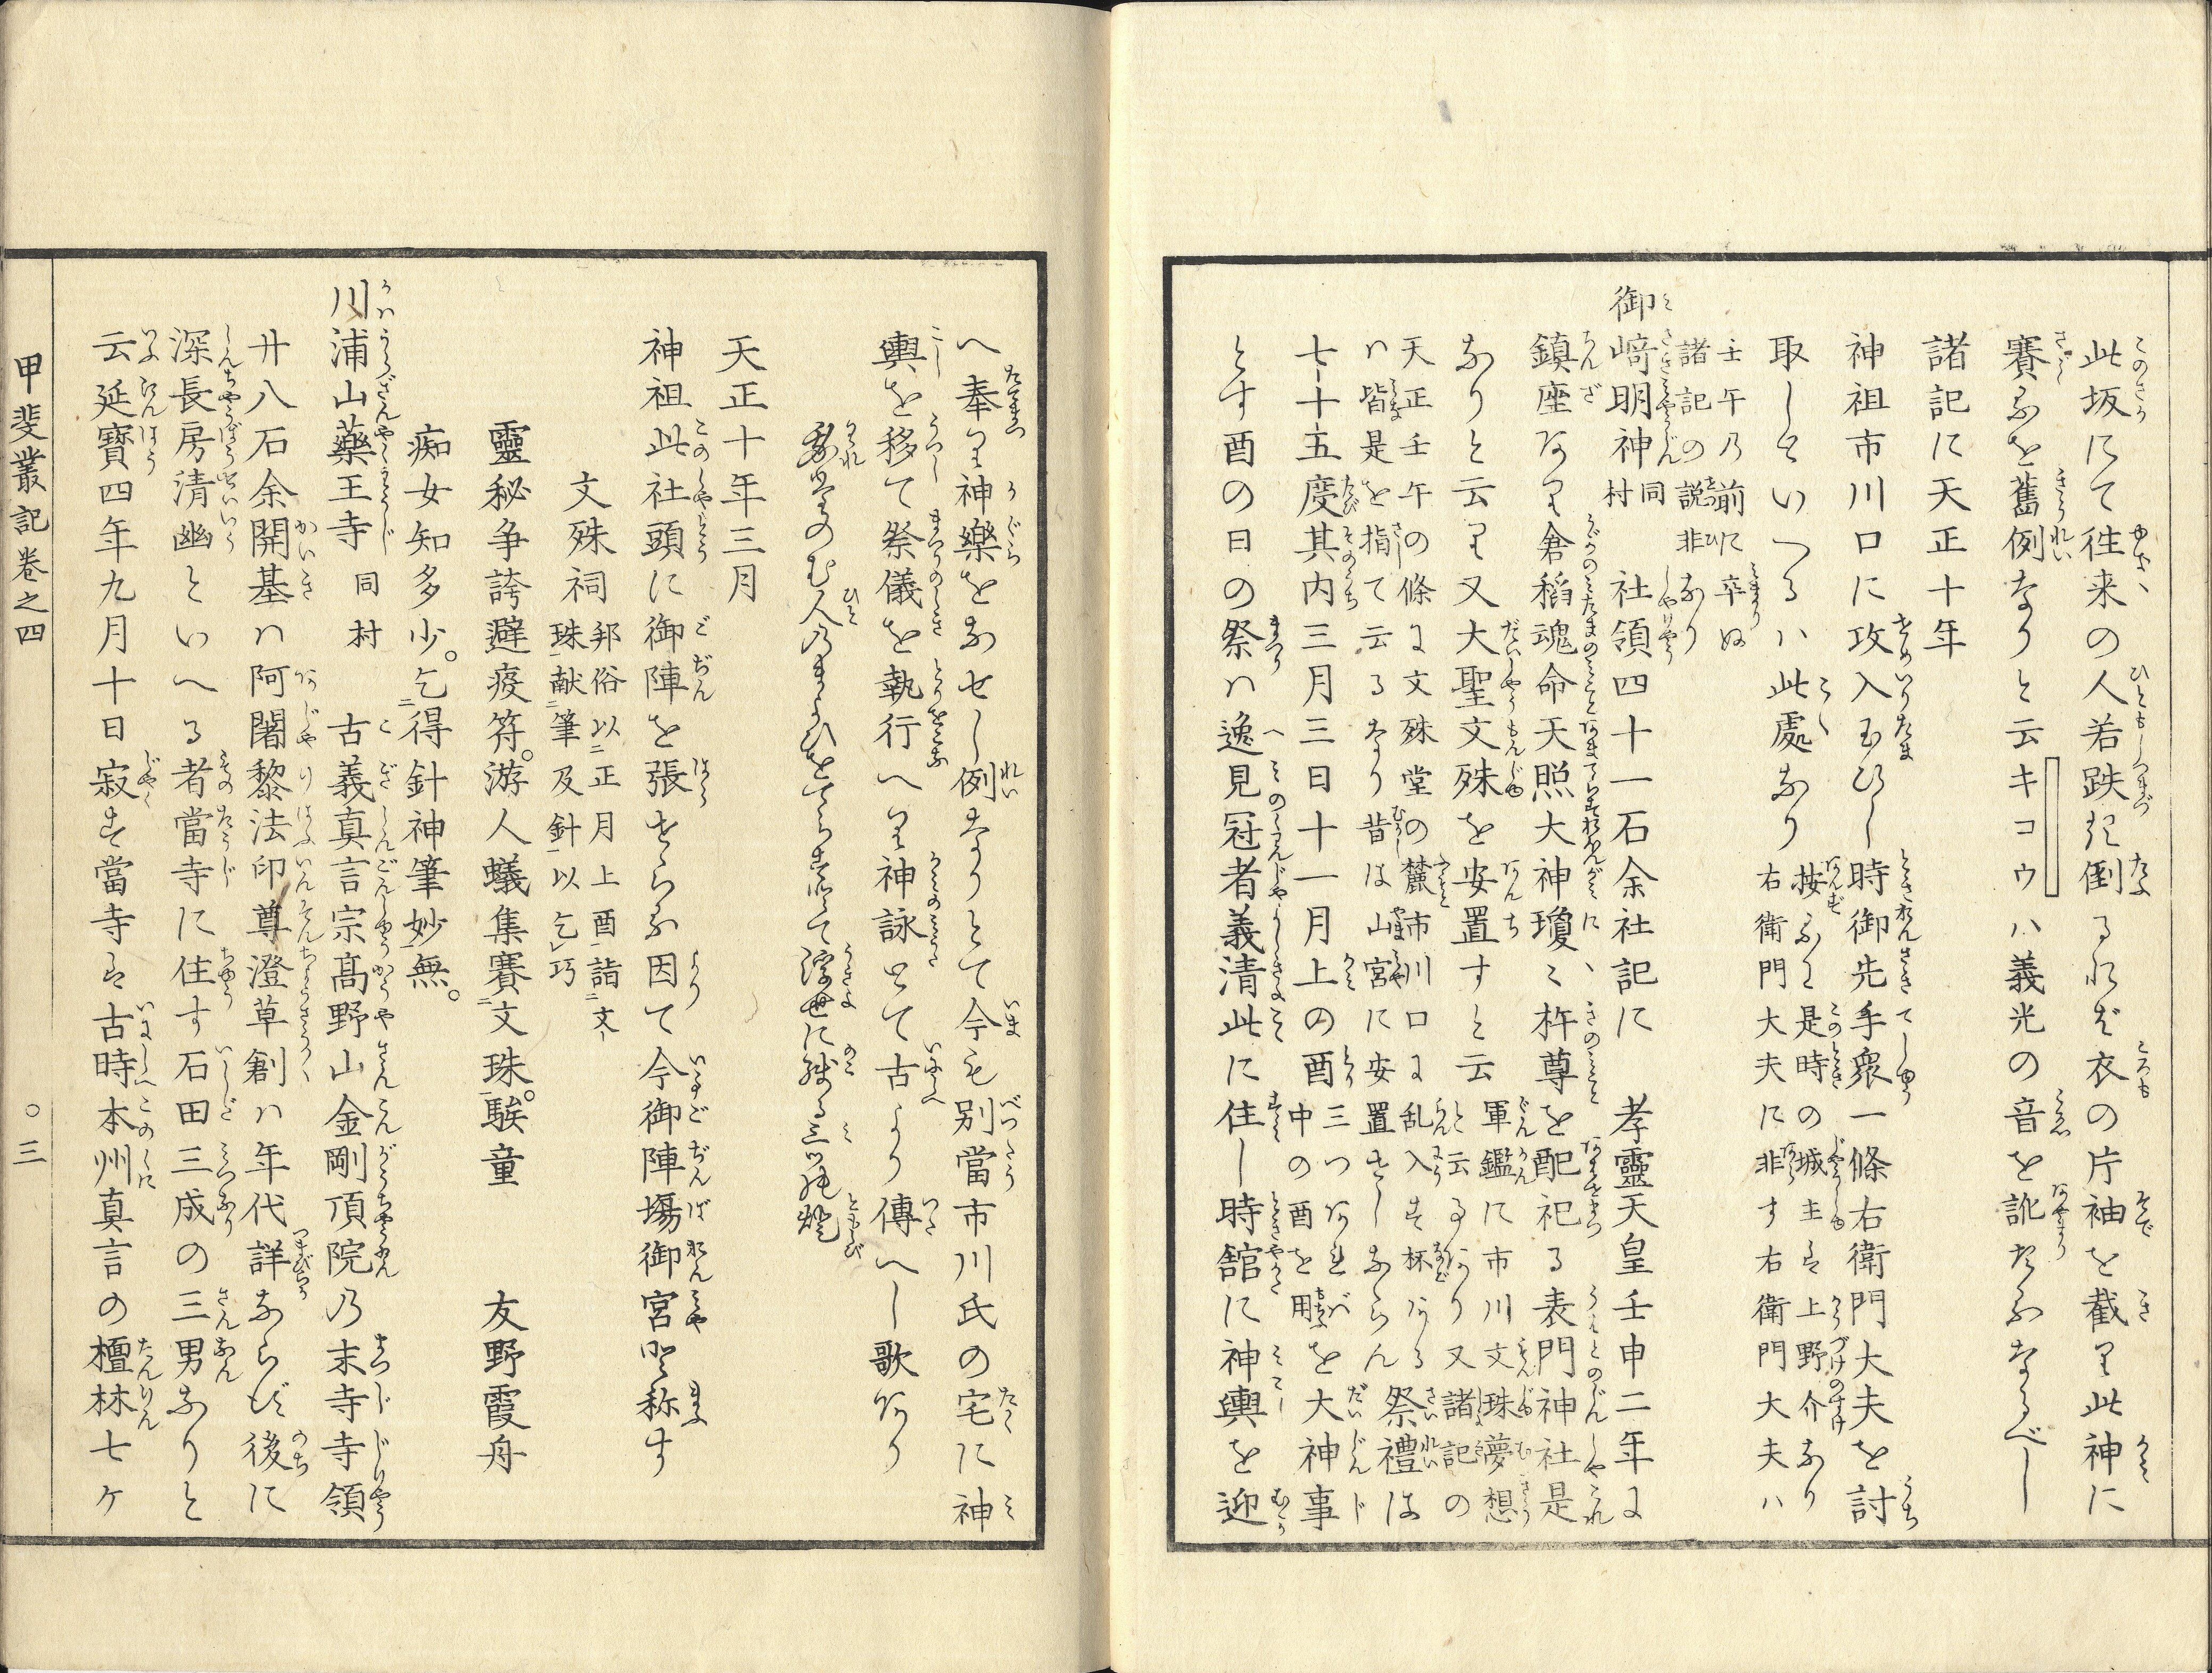 此坂にて往来の人若跌き倒るれば衣の片袖を截り此神に
賽るを舊例なりと云キコウハ義光の音を訛たるなるべし
諸記に天正十年
神祖市川口に攻入玉ひし時御先手衆一條右衛門大夫を討
取しといへるハ此處なり
按ふに是時の城主は上野介なり
右衛門大夫に非す右衛門大夫ハ
壬午の前に卒ぬ
諸記の説非なり
御﨑明神同村 社領四十一石余社記に 孝靈天皇壬申二年に
鎮座あり倉稻魂命天照大神瓊々杵尊を配祀る表門神社是
なりと云り又大聖文殊を安置すと云
軍鑑に市川文珠夢想
と云る事あり又諸記の
天正壬午の條に文殊堂の麓市川口に乱入す杯ある
ハ皆是を指て云るなり昔は山宮に安置せしならん
祭禮は
七十五度其内三月三日十一月上の酉
三つあれバ
中の酉を用
を大神事
とす酉の日の祭ハ逸見冠者義清此に住し時舘に神輿を迎
へ奉り神樂をなせし例なりとて今も別當市川氏の宅に神
輿を移て祭儀を執行へり神詠とて古より傳へし歌あり
我たのむ人のまよひをてらさすて浮世に残る三ツの燈
天正十年三月
神祖此社頭に御陣を張せらる因て今御陣場御宮と称す
文殊祠
邦俗以正月上酉詣文
珠献筆及針以乞巧
靈秘争誇避疫符。游人蟻集賽文珠。騃童
友野霞舟
痴女知多少。乞得針神筆妙無。
川浦山藥王寺同村 古義真言宗髙野山金剛頂院乃末寺寺領
廿八石余開基ハ阿闍黎法印尊澄草創ハ年代詳ならず後に
深長房清幽といへる者當寺に住す石田三成の三男なりと
云延寶四年九月十日寂す當寺は古時本州真言の檀林七ヶ
甲斐叢記卷之四 ○三